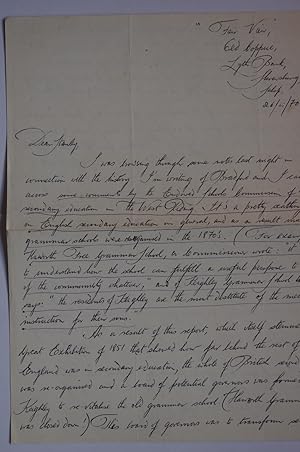 "Fair View",
Old Coppice,
Lyth Bank,
Shrewsbury
Salop
Dear Stanley
I was browsing through some notes last night in
connection with the history I'm writing of Bradford and I came
across some comments by the Endowed Schools Commission of
secondary education in the West Riding. It is a pretty scathing
on English secondary education in general, and as a result the
grammar schools were revamped in the 1870's. (For example
Haworth Free Grammar School, a Commissioner wrote: "
to understand how the school can fulfill a useful purpose to
of the community whatever," and of Keighley Grammar School he
says: "the residents of Keighley are the most destitute of the means
instruction for their sons."
As a result of this report, which itself stemmed
Great Exhibition of 1851 that showed how far behind the rest of
England was in secondary education, the whole of British secondary
was re-organised and a board of potential governors was formed
Keighley to re-vitalise the old grammar school (Haworth Grammar
was closed down!) This board of governors was to transform